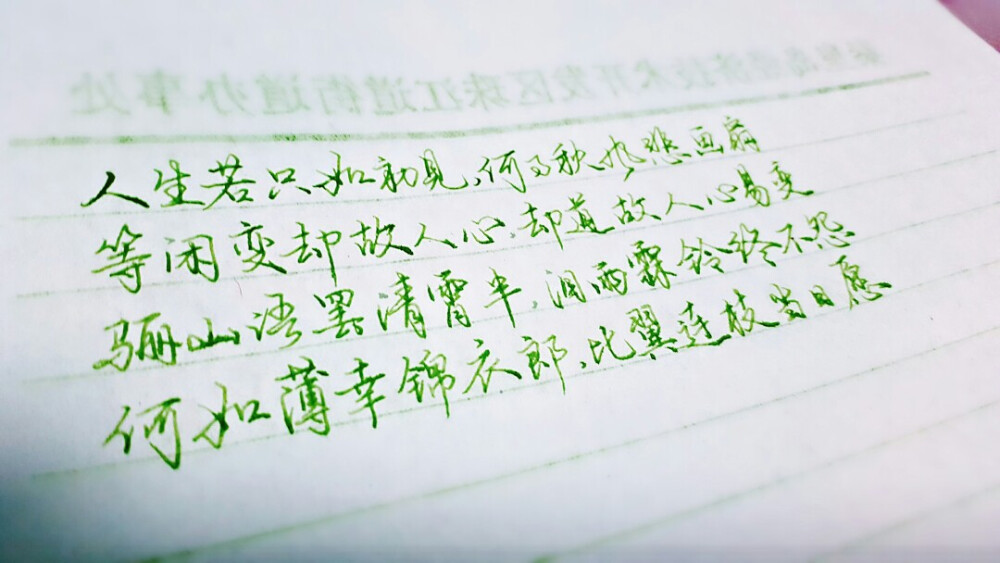 秦皇岛经济技术开发区珠江道街道办事处
人生若只如初见,何事秋风悲画扇
等闲变却故人心,却道故人心易变
骊山语罢清霄半,泪雨霖铃终不怨
何如薄幸锦衣郎,比翼连枝当日愿